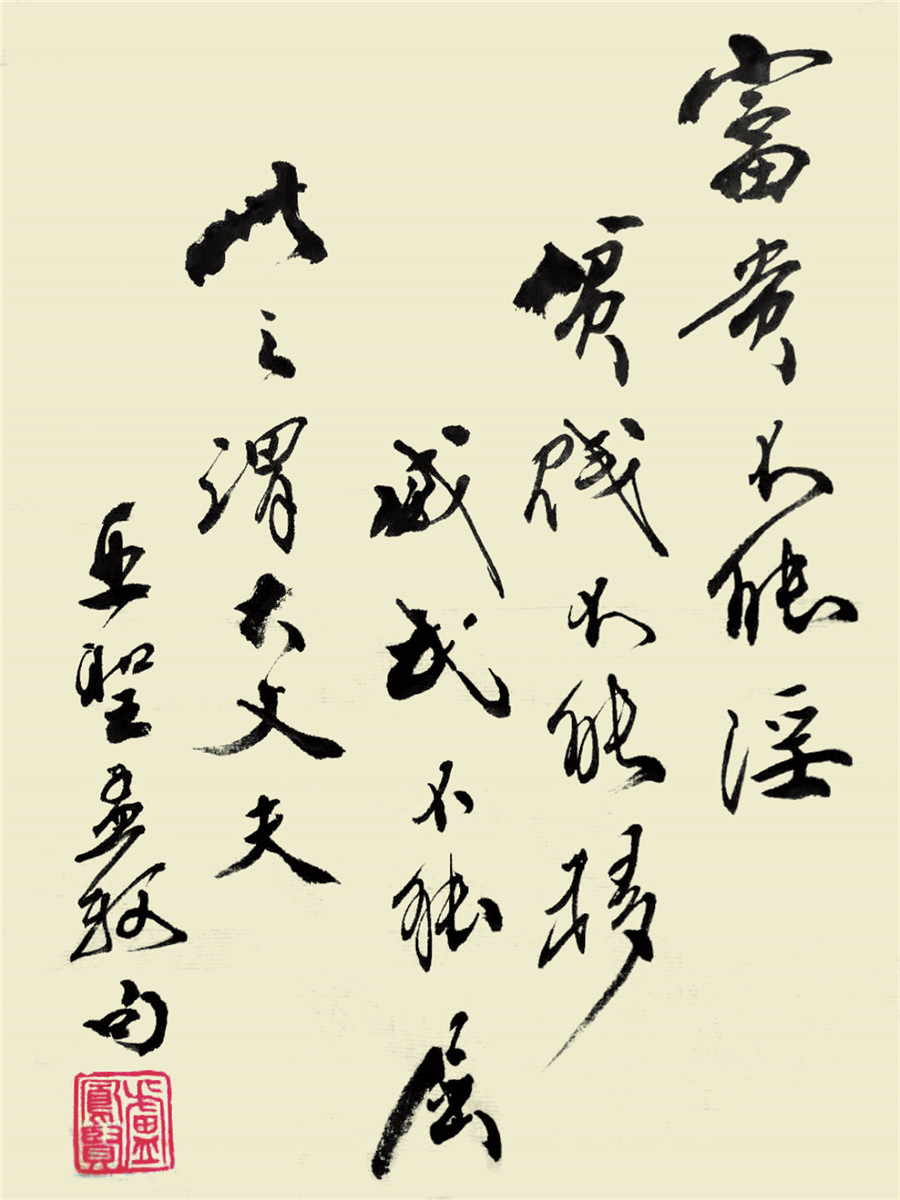 富贵不能淫
贫贱不能移
威武不能屈
此之谓大丈夫
亚聖孟轲句
盧鳳賢